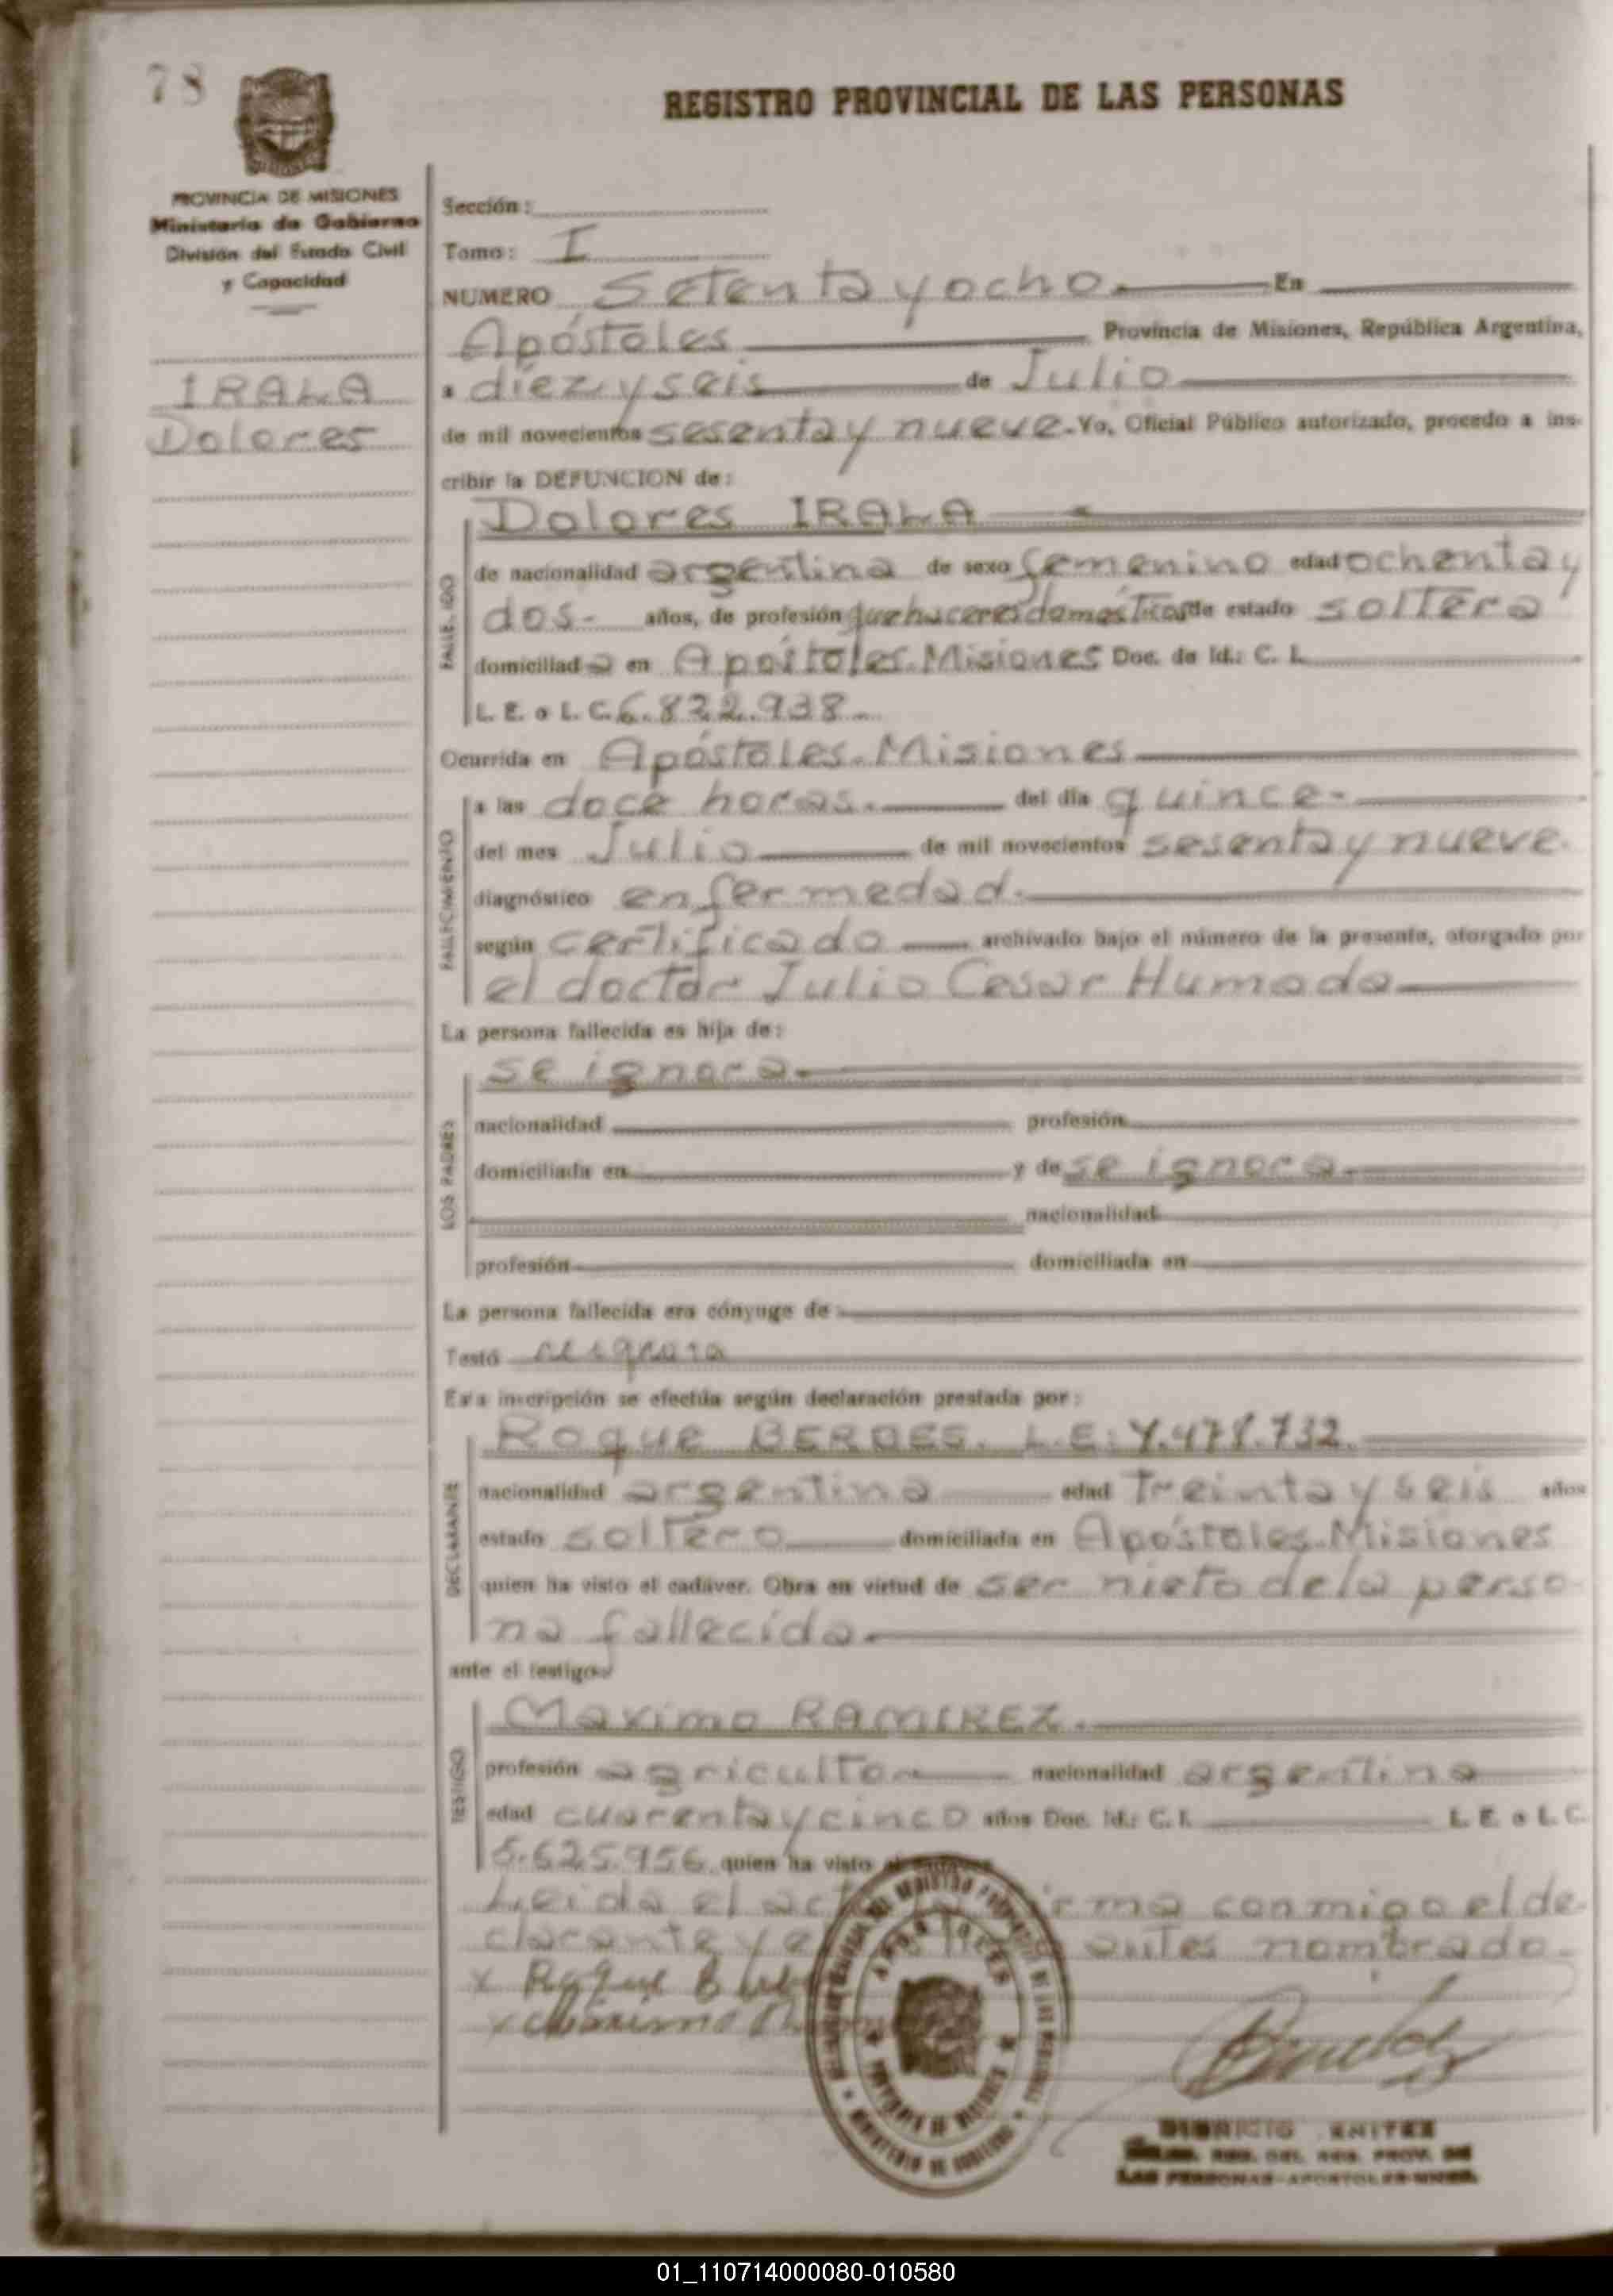 78
REGISTRO PROVINCIAL DE LAS PERSONAS
PROVINCIA DE MISIONES
Ministerio de Gobierno
División del Estado Civil
y Capacidad
IRALA
Dolores
Sección:
Tomo: I
NUMERO Setenta y ocho En
Apóstoles Provincia de Misiones, República Argentina,
a diez y seis de Julio
de mil novecientos sesenta y nueve. Yo, Oficial Público autorizado, procedo a ins-
cribir la DEFUNCION de:
Dolores IRALA
FALLECIDO
de nacionalidad argentina de sexo femenino edad ochenta y
dos- años, de profesión quehaceres domésticos de estado soltera
domiciliada en Apóstoles. Misiones Doc. de Id.: C. I.
L. E. o L. C. 6.822.938
Ocurrida en Apóstoles. Misiones
FALLECIMIENTO
a las doce horas. del día quince-
del mes Julio de mil novecientos sesenta y nueve.
diagnóstico enfermedad.
según certificado archivado bajo el número de la presente, otorgado por
el doctor Julio Cesar Humada
La persona fallecida es hija de:
LOS PADRES
se ignora.
nacionalidad profesión
domiciliada en y de se ignora.
nacionalidad
profesión domiciliada en
La persona fallecida era cónyuge de:
Testó se ignora
Esta inscripción se efectúa según declaración prestada por:
DECLARANTE
Roque L.E:
nacionalidad argentina edad Treinta y seis años
estado soltero domiciliada en Apóstoles. Misiones
quien ha visto el cadáver. Obra en virtud de ser nieto de la perso-
na fallecida.
ante el testigo
TESTIGO
Maximo RAMIREZ.
profesión agricultor nacionalidad argentina
edad cuarenta y cinco años Doc. Id.: C. I. L. E. o L. C.
5.625.956 quien ha visto
Leida el acta firma conmigo el de-
clarante y antes nombrado.
x Roque
x Máximo
APOSTOLES
PROVINCIA DE MISIONES
MINISTERIO DE GOBIERNO
DIONICIO
REG. DEL REG. PROV. DE
LAS PERSONAS-APOSTOLES-MNES.
01_110714000080-010580